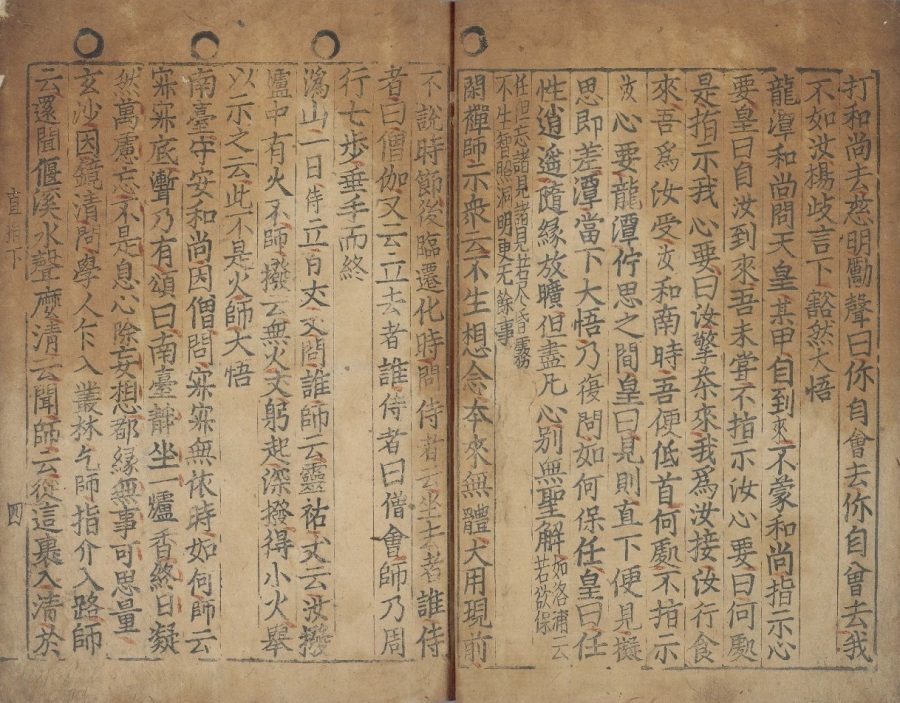 打和尚去慈明勵聲曰你自會去你自會去我
不如汝楊歧言下豁然大悟
龍潭和尚問天皇某甲自到來不蒙和尚指示心
要皇曰自汝到來吾未甞不指示汝心要曰何處
是指示我心要曰汝擎茶來我爲汝接汝行食
來吾爲汝受汝和南時吾便低首何處不指示
汝心要龍潭佇思之間皇曰見則直下便見擬
思即差潭當下大悟乃復問如何保任皇曰任
性逍遥隨緣放曠但盡凡心别無聖解如洛浦云若欲保
任但忘諸見諸見若人昏霧
不生智照洞明更无餘事
閑禪師示衆云不生想念本來無體大用現前
不說時節後臨遷化時問侍者云坐去者誰侍
者曰僧伽又云立去者誰侍者曰僧會師乃周
行七步垂手而終
潙山一日侍立百丈丈問誰師云靈祐丈云汝撥
爐中有火不師撥云無火丈躬起深撥得小火擧
以示之云此不是火師大悟
南臺守安和尚因僧問寂寂無依時如何師云
寂寂底漸乃有頌曰南臺靜坐一爐香終日凝
然萬慮忘不是息心除妄想都緣無事可思量
玄沙因鏡清問學人乍入叢林乞師指介入路師
云還聞偃溪水聲麽清云聞師云從這裏入清於
直指下
四